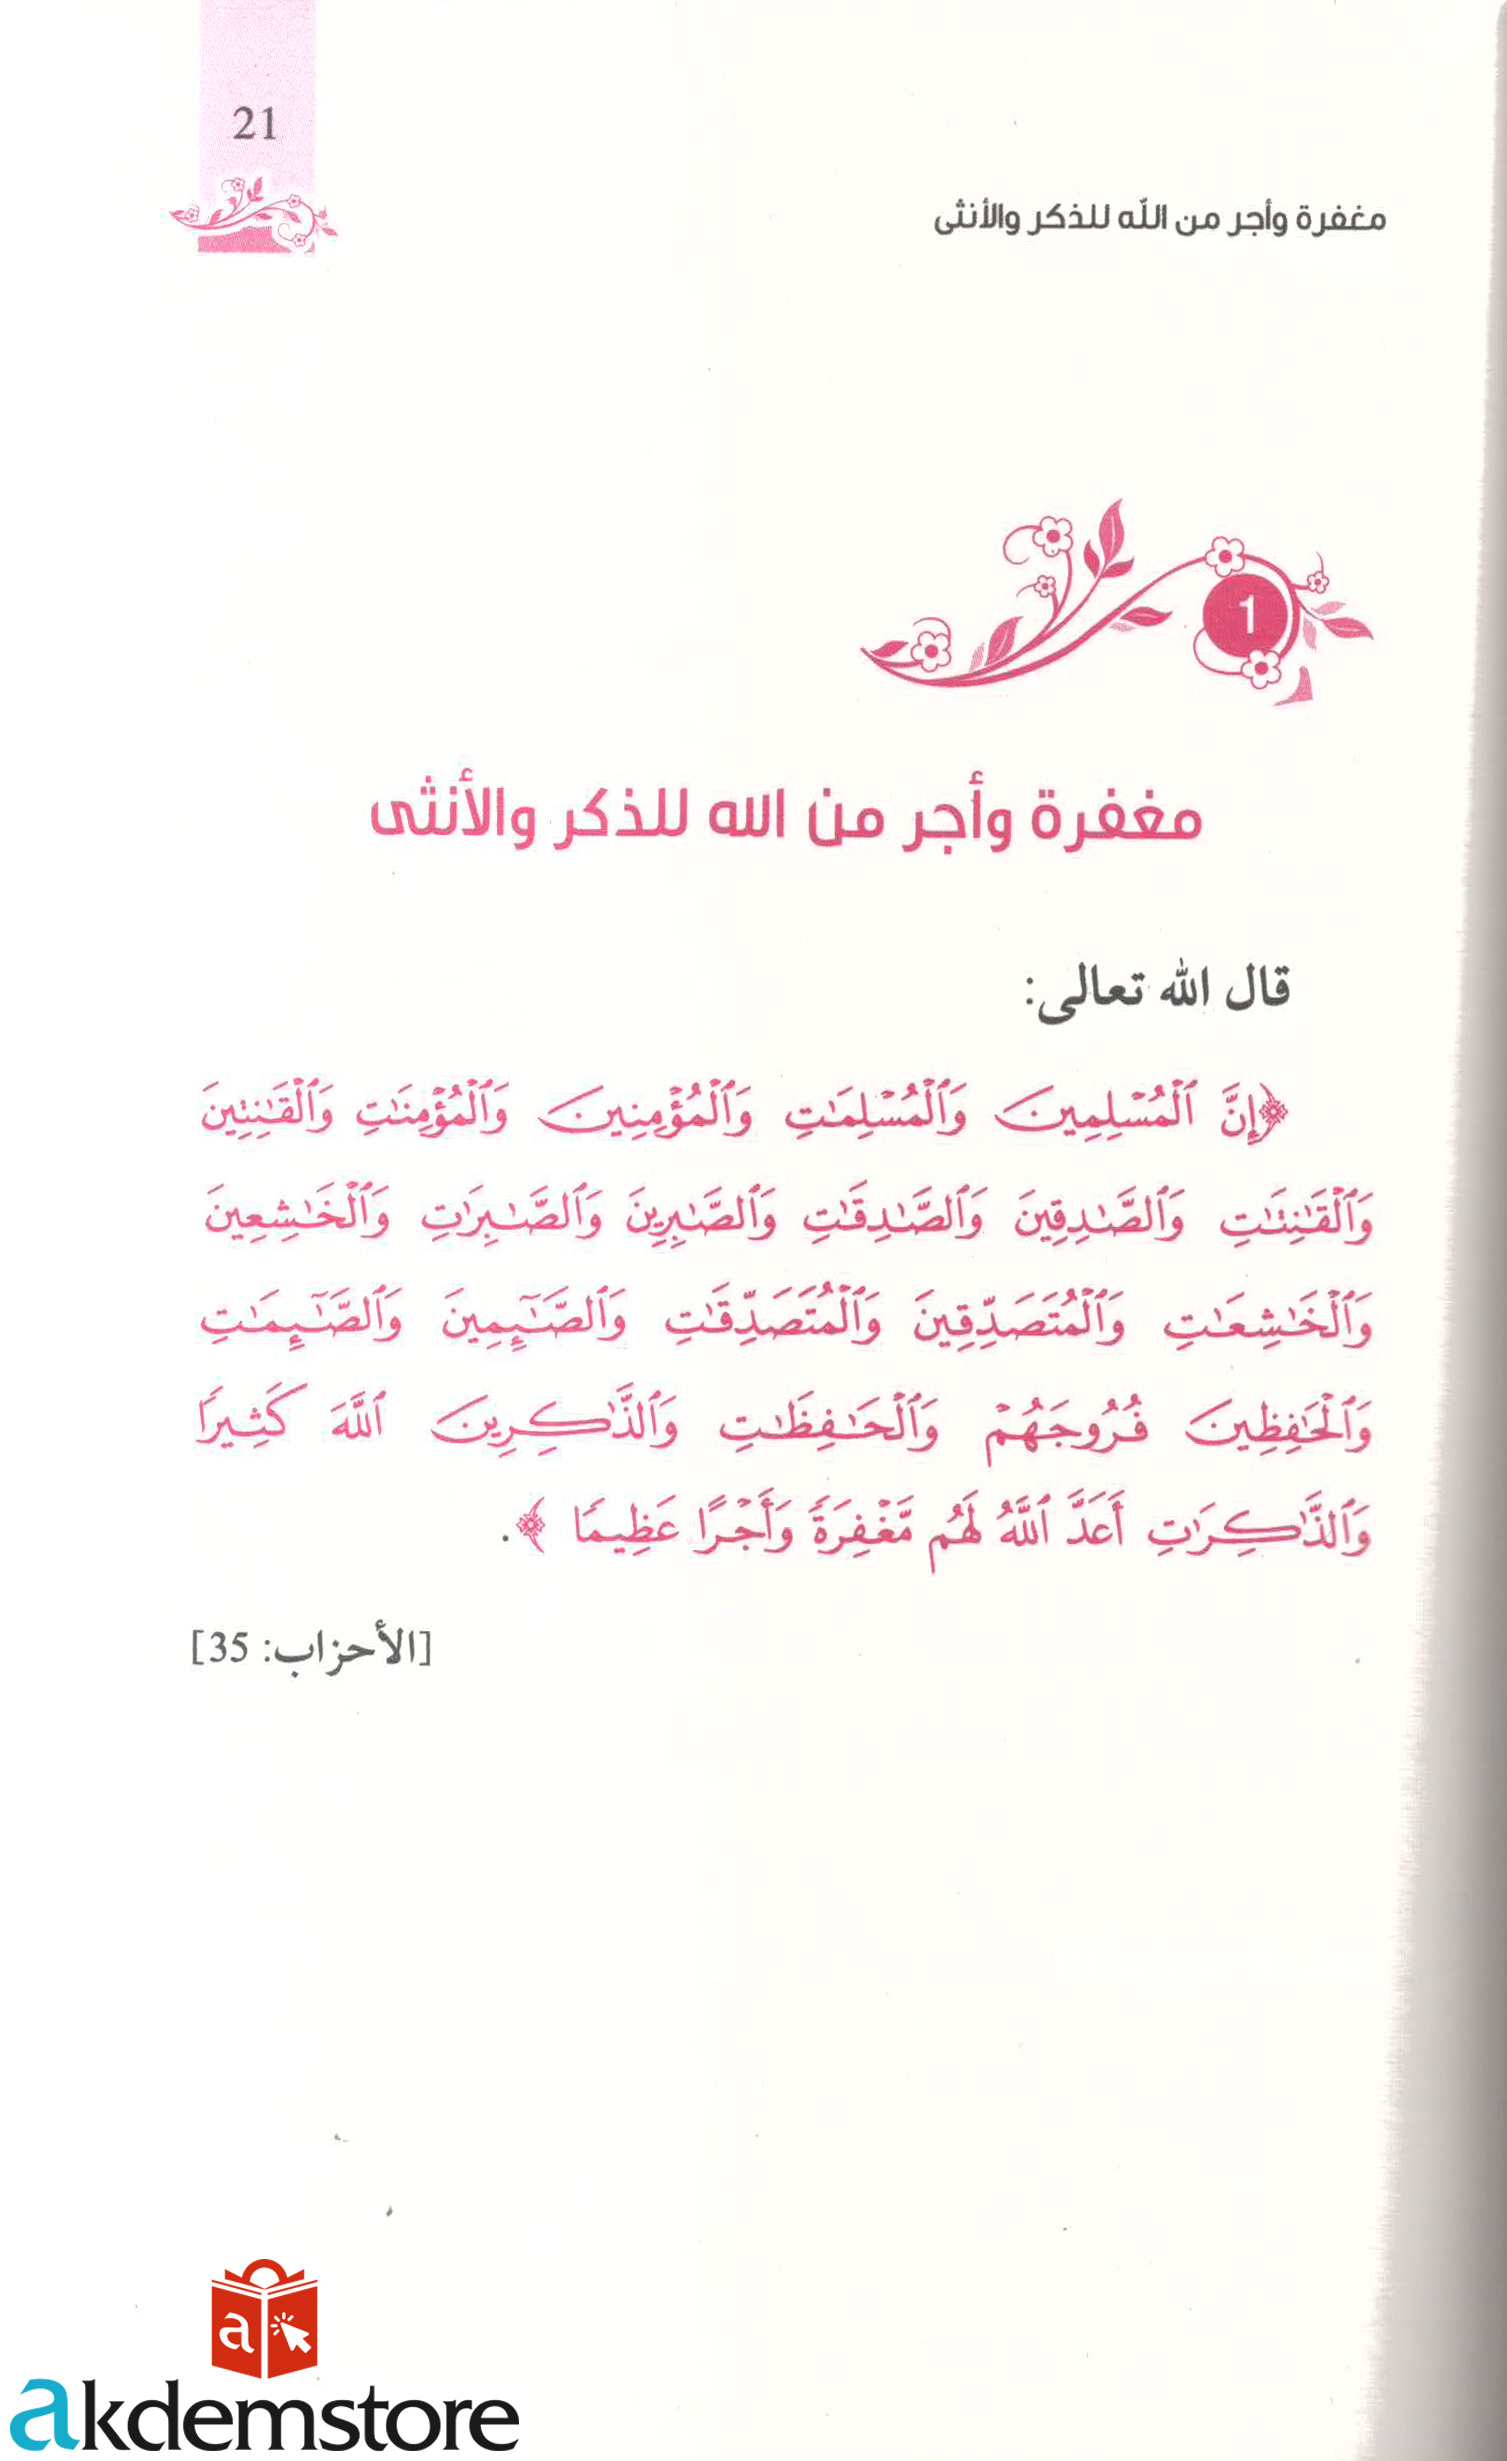 21
مغفرة وأجر من الله للذكر والأنثى
1
مغفرة وأجر من الله للذكر والأنثى
قال الله تعالى:
﴿إِنَّ ٱلْمُسْلِمِينَ وَٱلْمُسْلِمَٰتِ وَٱلْمُؤْمِنِينَ وَٱلْمُؤْمِنَٰتِ وَٱلْقَٰنِتِينَ
وَٱلْقَٰنِتَٰتِ وَٱلصَّٰدِقِينَ وَٱلصَّٰدِقَٰتِ وَٱلصَّٰبِرِينَ وَٱلصَّٰبِرَٰتِ وَٱلْخَٰشِعِينَ
وَٱلْخَٰشِعَٰتِ وَٱلْمُتَصَدِّقِينَ وَٱلْمُتَصَدِّقَٰتِ وَٱلصَّٰٓئِمِينَ وَٱلصَّٰٓئِمَٰتِ
وَٱلْحَٰفِظِينَ فُرُوجَهُمْ وَٱلْحَٰفِظَٰتِ وَٱلذَّٰكِرِينَ ٱللَّهَ كَثِيرًا
وَٱلذَّٰكِرَٰتِ أَعَدَّ ٱللَّهُ لَهُم مَّغْفِرَةً وَأَجْرًا عَظِيمًا ﴾.
[الأحزاب: 35]
a
akdemstore